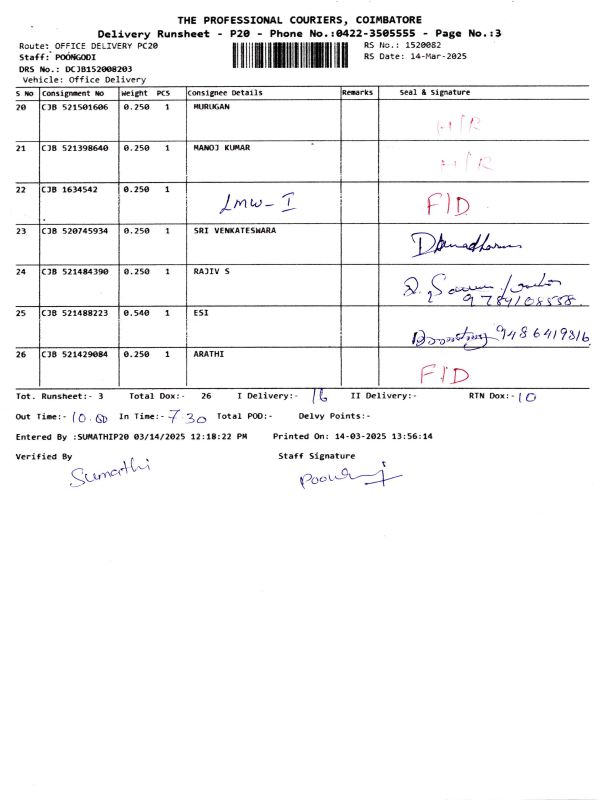 THE PROFESSIONAL COURIERS, COIMBATORE
Delivery Runsheet - P20 - Phone No.:0422-3505555 - Page No.:3
Route: OFFICE DELIVERY PC20 RS No.: 1520082
Staff: POONGODI RS Date: 14-Mar-2025
DRS No.: DCJB152008203
Vehicle: Office Delivery
S No Consignment No Weight PCS Consignee Details Remarks Seal & Signature
20 CJB 521501606 0.250 1 MURUGAN
H/R
21 CJB 521398640 0.250 1 MANOJ KUMAR
H/R
22 CJB 1634542 0.250 1
LMW-I F/D
23 CJB 520745934 0.250 1 SRI VENKATESWARA
24 CJB 521484390 0.250 1 RAJIV S
9784108558
25 CJB 521488223 0.540 1 ESI
9486419816
26 CJB 521429084 0.250 1 ARATHI
F/D
Tot. Runsheet:- 3 Total Dox:- 26 I Delivery:- 16 II Delivery:- RTN Dox:- 10
Out Time:- 10.00 In Time:- 7.30 Total POD:- Delvy Points:-
Entered By :SUMATHIP20 03/14/2025 12:18:22 PM Printed On: 14-03-2025 13:56:14
Verified By Staff Signature
Sumathi